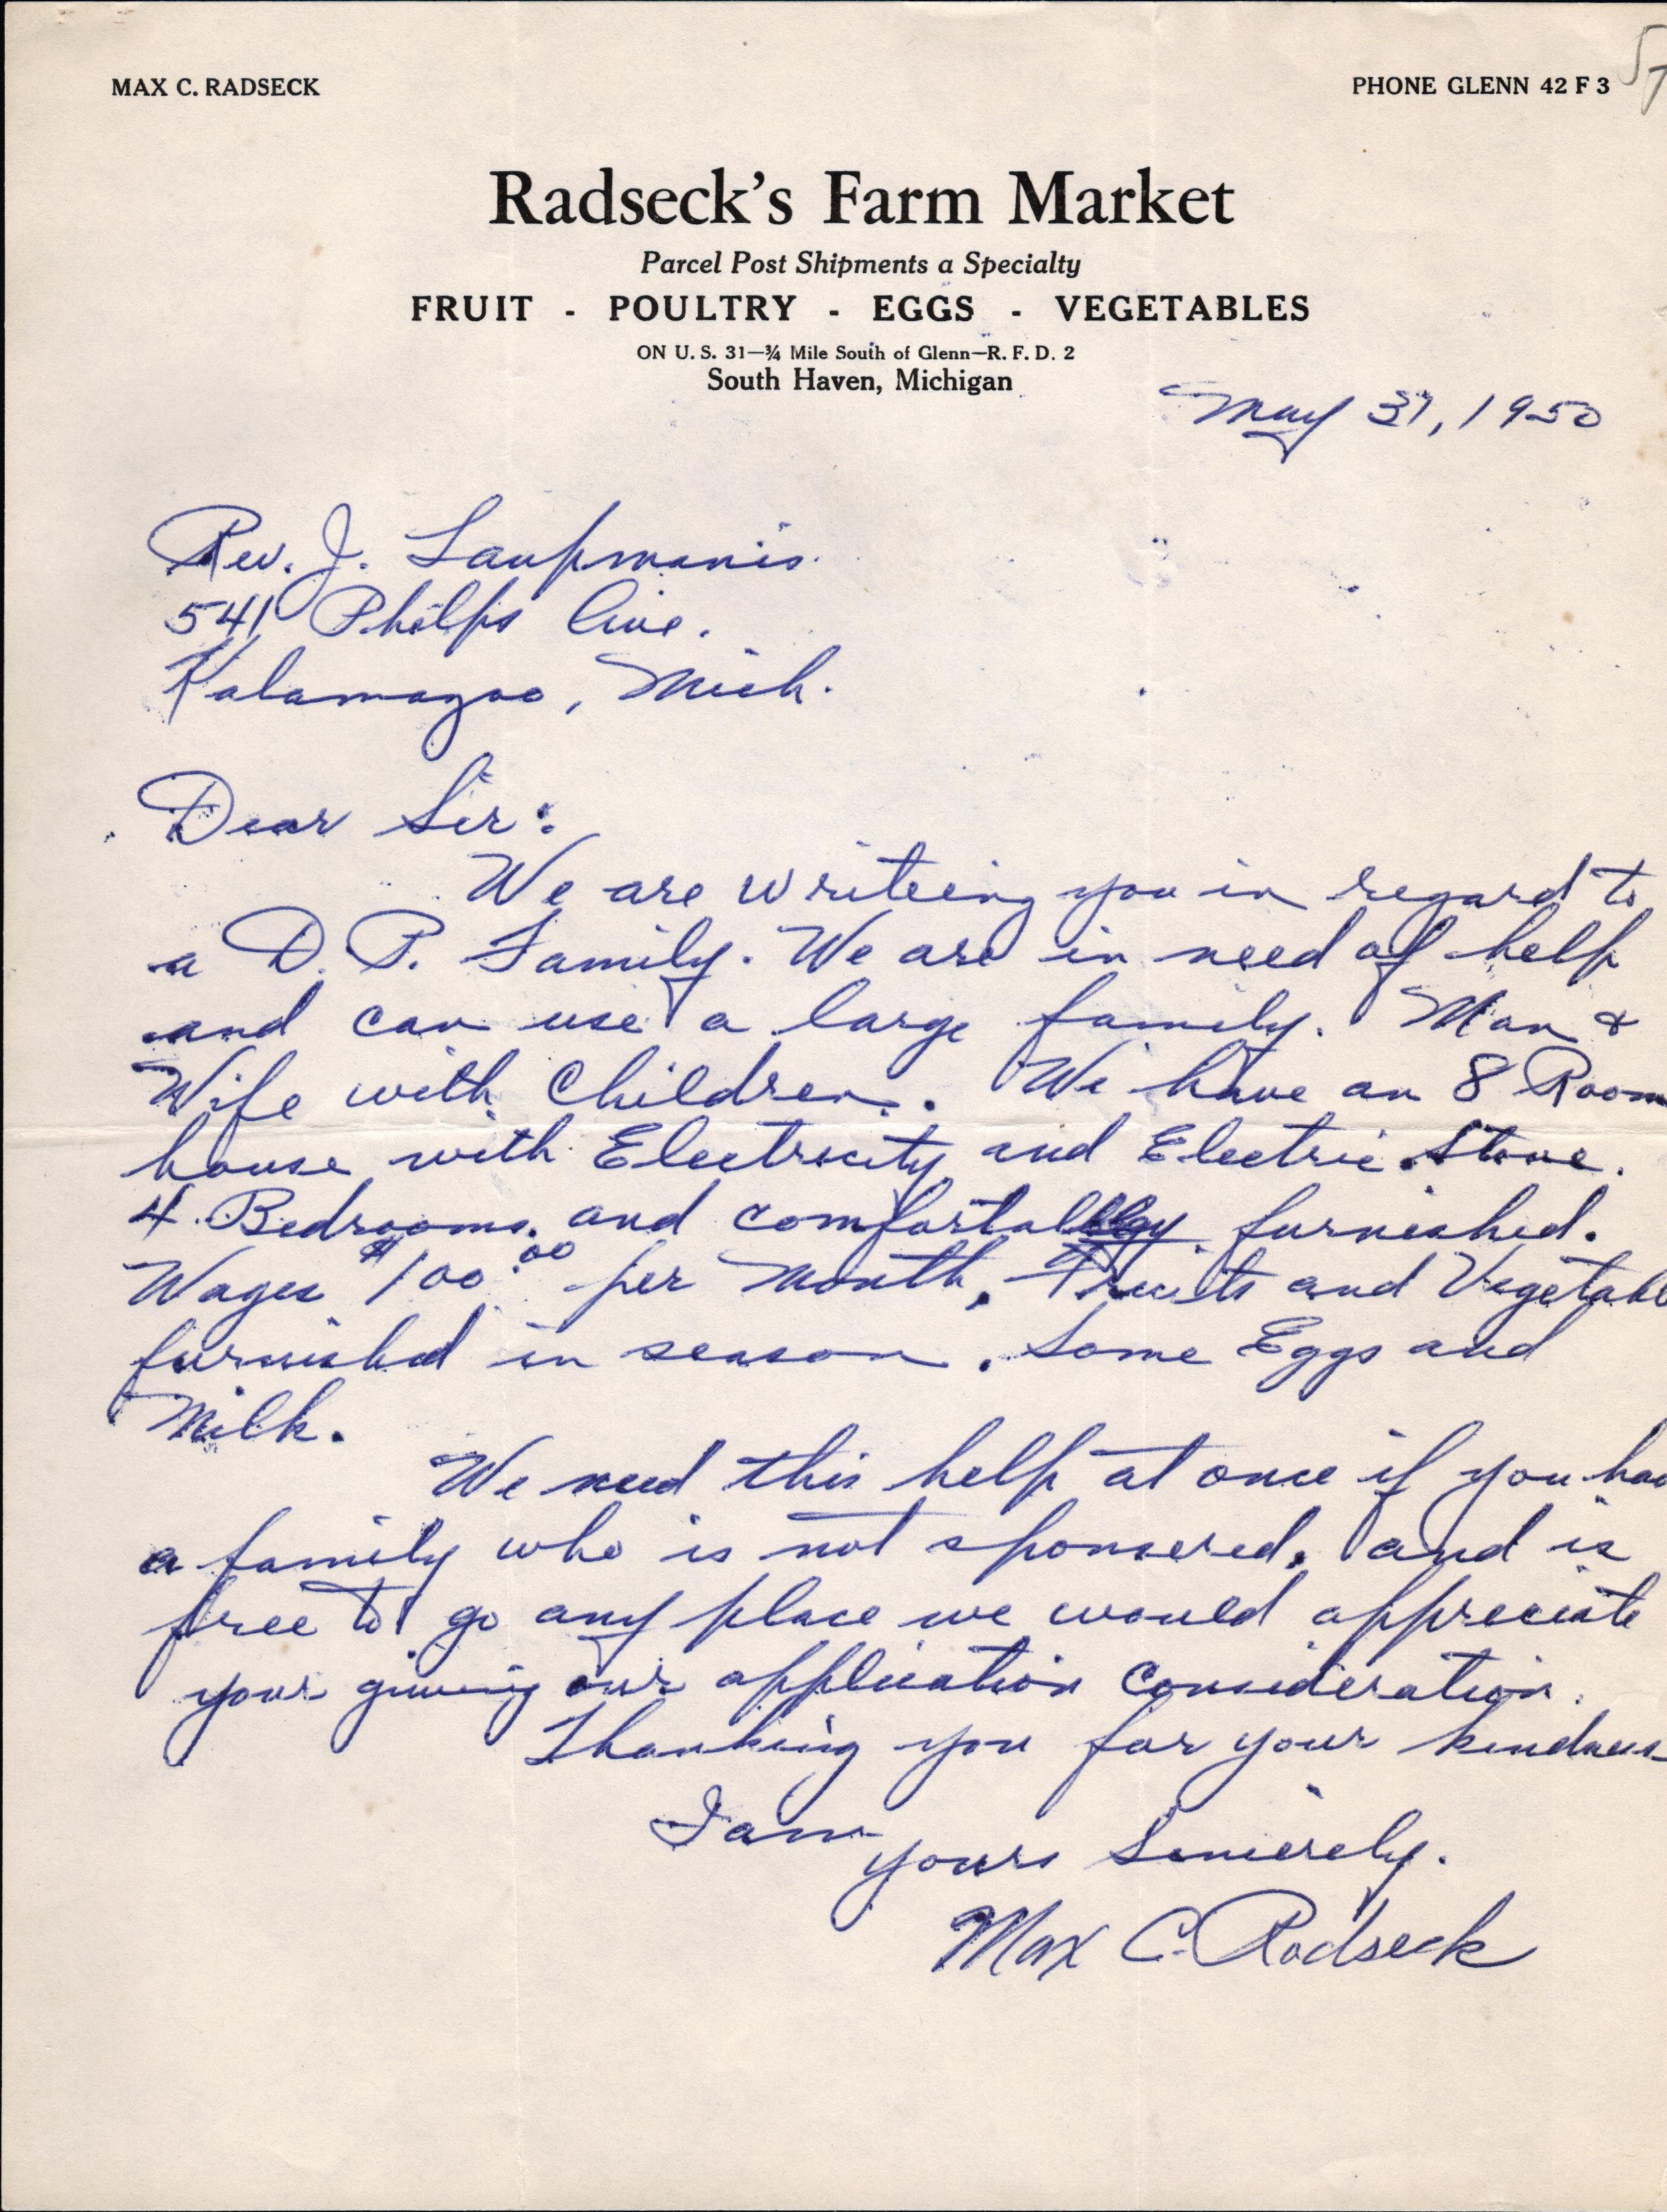 MAX C. RADSECK
PHONE GLENN 42 F 3
Radseck's Farm Market
Parcel Post Shipments a Specialty
FRUIT - POULTRY - EGGS - VEGETABLES
ON U. S. 31—¾ Mile South of Glenn—R. F. D. 2
South Haven, Michigan
May 31, 1950
Rev. J. Laupmanis
541 Phelps Ave.
Kalamazoo, Mich.
Dear Sir:
We are writeing you in regard to
a D. P. Family. We are in need of help
and can use a large family. Man &
Wife with Children. We have an 8 Room
house with Electricity and Electric Stove.
4 Bedrooms. and comfortabley furnished.
Wages $100.00 per Month, Fruits and Vegetabl
furnished in season. Some Eggs and
Milk.
We need this help at once if you hav
a family who is not sponsered, and is
free to go any place we would appreciate
your giveing our application consideration.
Thanking you for your kindness
I am
yours Sincerely.
Max C. Radseck